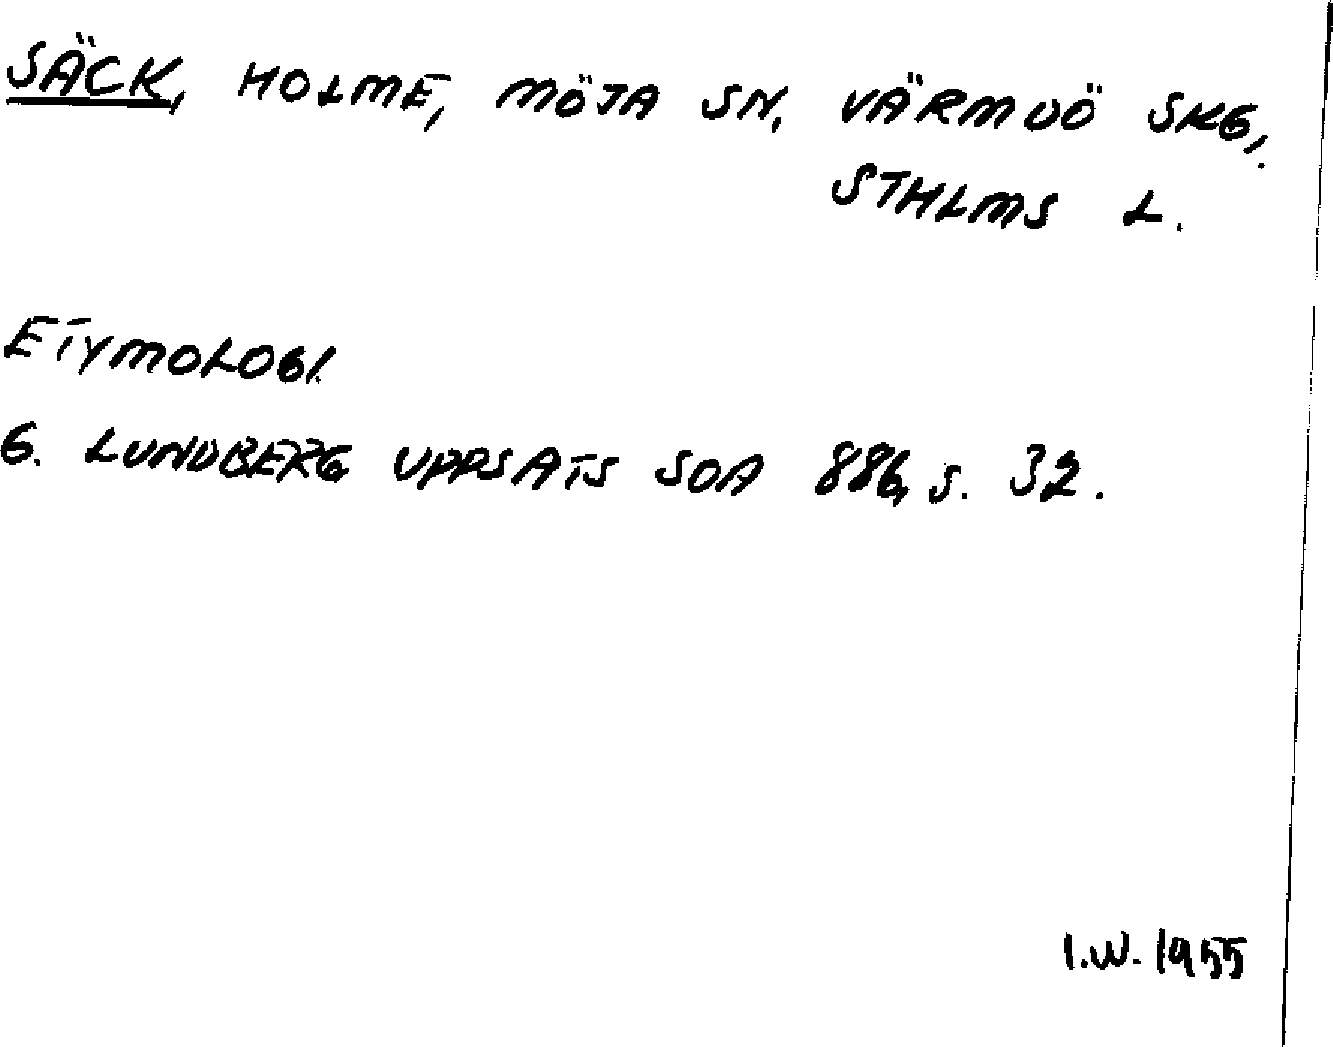 SÄCK, HOLME, MÖJA SN, VÄRMDÖ SKG,
STHLMS L.
ETYMOLOGI.
G. LUNDBERG UPPSATS SOA 886, S. 32.
I.W. 1955